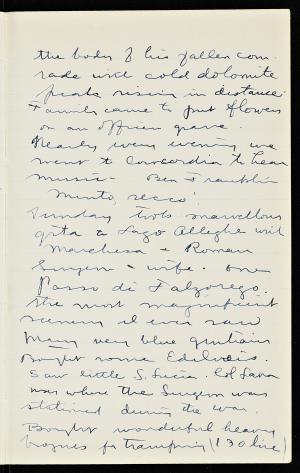 the body of his fallen com-
rade with cold dolomite
peaks rising in distance.
Family came to put flowers
on an officer's grave.
Nearly every evening we
went to Concordia to hear
music - Ben Franklin
Mento secco!
Sunday took marvellous
gita to Lago Alleghe with
Marchesa + Roman
Surgeon + wife. Over
Passo di Falzarego.
The most magnificent
scenery I ever saw
Many very blue gentians
Bought some Edelweis.
Saw little S. Lucia. Col Lana
was where the Surgeon was
stationed during the war.
Bought wonderful heavy
brogues for tramping (130 lire)